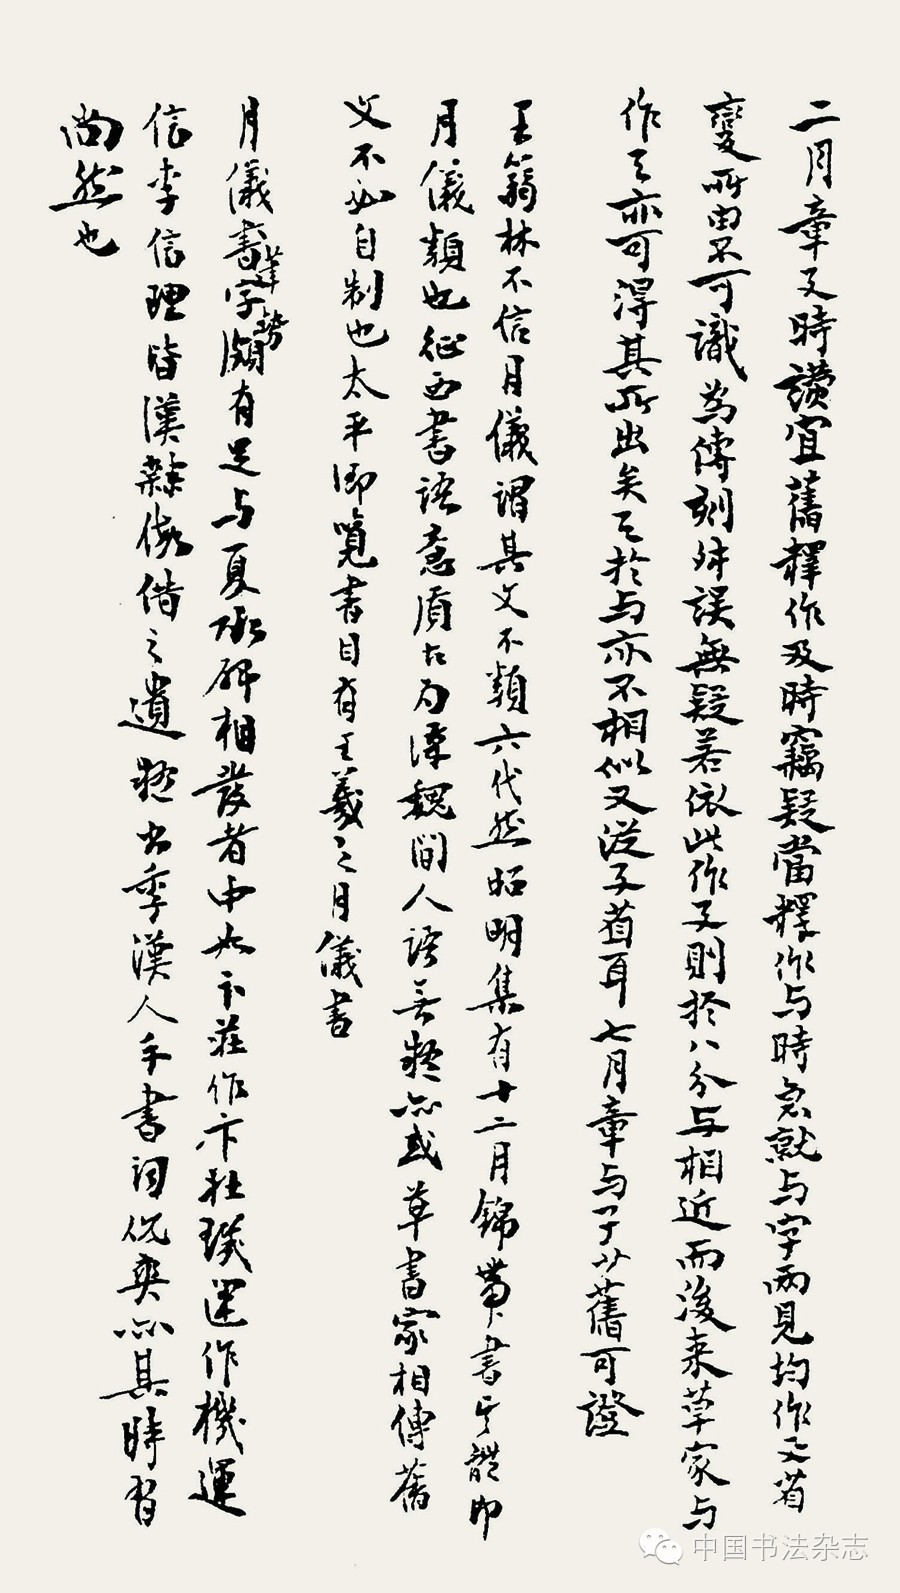 二月章 時讚宜舊釋作及時竊疑當釋作与時急就与字兩見均作 省
變所由不可識為傳刻 誤無疑若依此作 則於八分与相近而後来草家与
作 亦可得其所出矣 於与亦不相似又從 者耳七月章与子 舊可證
王蒻林不信月儀謂其文不類六代然昭明集有十二月錦帶書其體即
月儀類也征西書語意質古为漢魏間人語無疑 或草書家相傳舊
文不必自制也太平御覽書目有王羲之月儀書
月儀書筆字勢頗有足与夏承碑相發者中如卞莊作 杜璞運作機運
信李信理皆漢隸假借之遺疑出季漢人手書词 其時習
尚然也
中国书法杂志